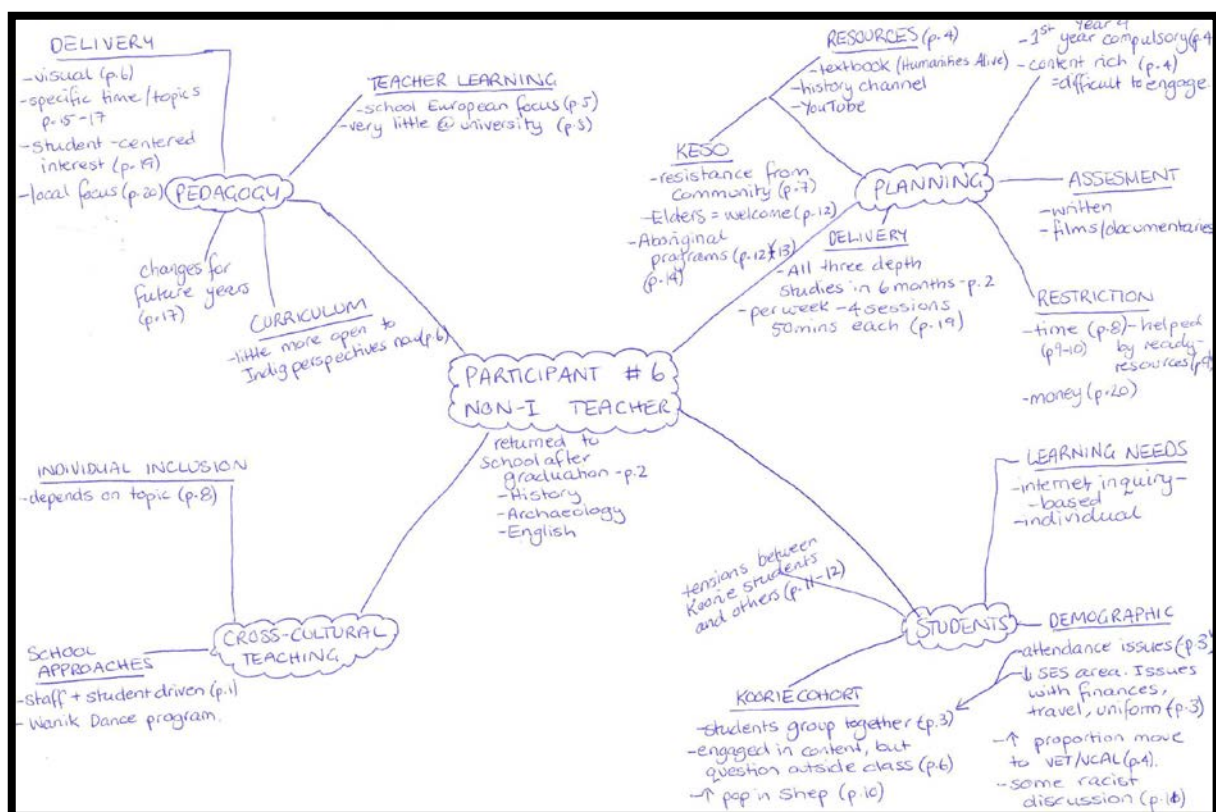 DELIVERY
-visual (p.6)
-specific time/topics
p.15-17
-student-centered
interest (p.19)
-local focus (p.20)
PEDAGOGY
TEACHER LEARNING
-school European focus (p.5)
-very little @ university (p.5)
changes for
future years
(p.17)
CURRICULUM
-little more open to
Indig perspectives now (p.6)
RESOURCES (p.4)
-textbook (Humanities Alive)
-history channel
-YouTube
Year 9
-1st year compulsory (p.4
-content rich (p.4)
=difficult to engage.
KESO
-resistance from
community (p.7)
-Elders = welcome (p.12)
-Aboriginal
programs (p.12)(13)
(p.14)
PLANNING
ASSESMENT
-written
-films/documentaries
DELIVERY
-All three depth
studies in 6 months -p.2
-per week -4 sessions
50mins each (p.19)
RESTRICTION
-time (p.8)-helped
(p9-10) by ready-
resources (p.9)
-money (p.20)
PARTICIPANT #6
NON-I TEACHER
returned to
school after
graduation -p.2
-History
-Archaeology
-English
INDIVIDUAL INCLUSION
-depends on topic (p.8)
CROSS-CULTURAL
TEACHING
SCHOOL
APPROACHES
-staff + student driven (p.1)
-Wanik Dance program.
LEARNING NEEDS
-internet inquiry-
-based
-individual
tensions between
Koorie students
and others (p.11-12)
STUDENTS
DEMOGRAPHIC
-attendance issues (p.3)
-↓ SES area. Issues
with finances,
travel, uniform (p.3)
-↑ proportion move
to VET/VCAL (p.4).
-some racist
discussion
KOORIE COHORT
-students group together (p.3)
-engaged in content, but
question outside class (p.6)
-↑ pop in Shep (p.10)